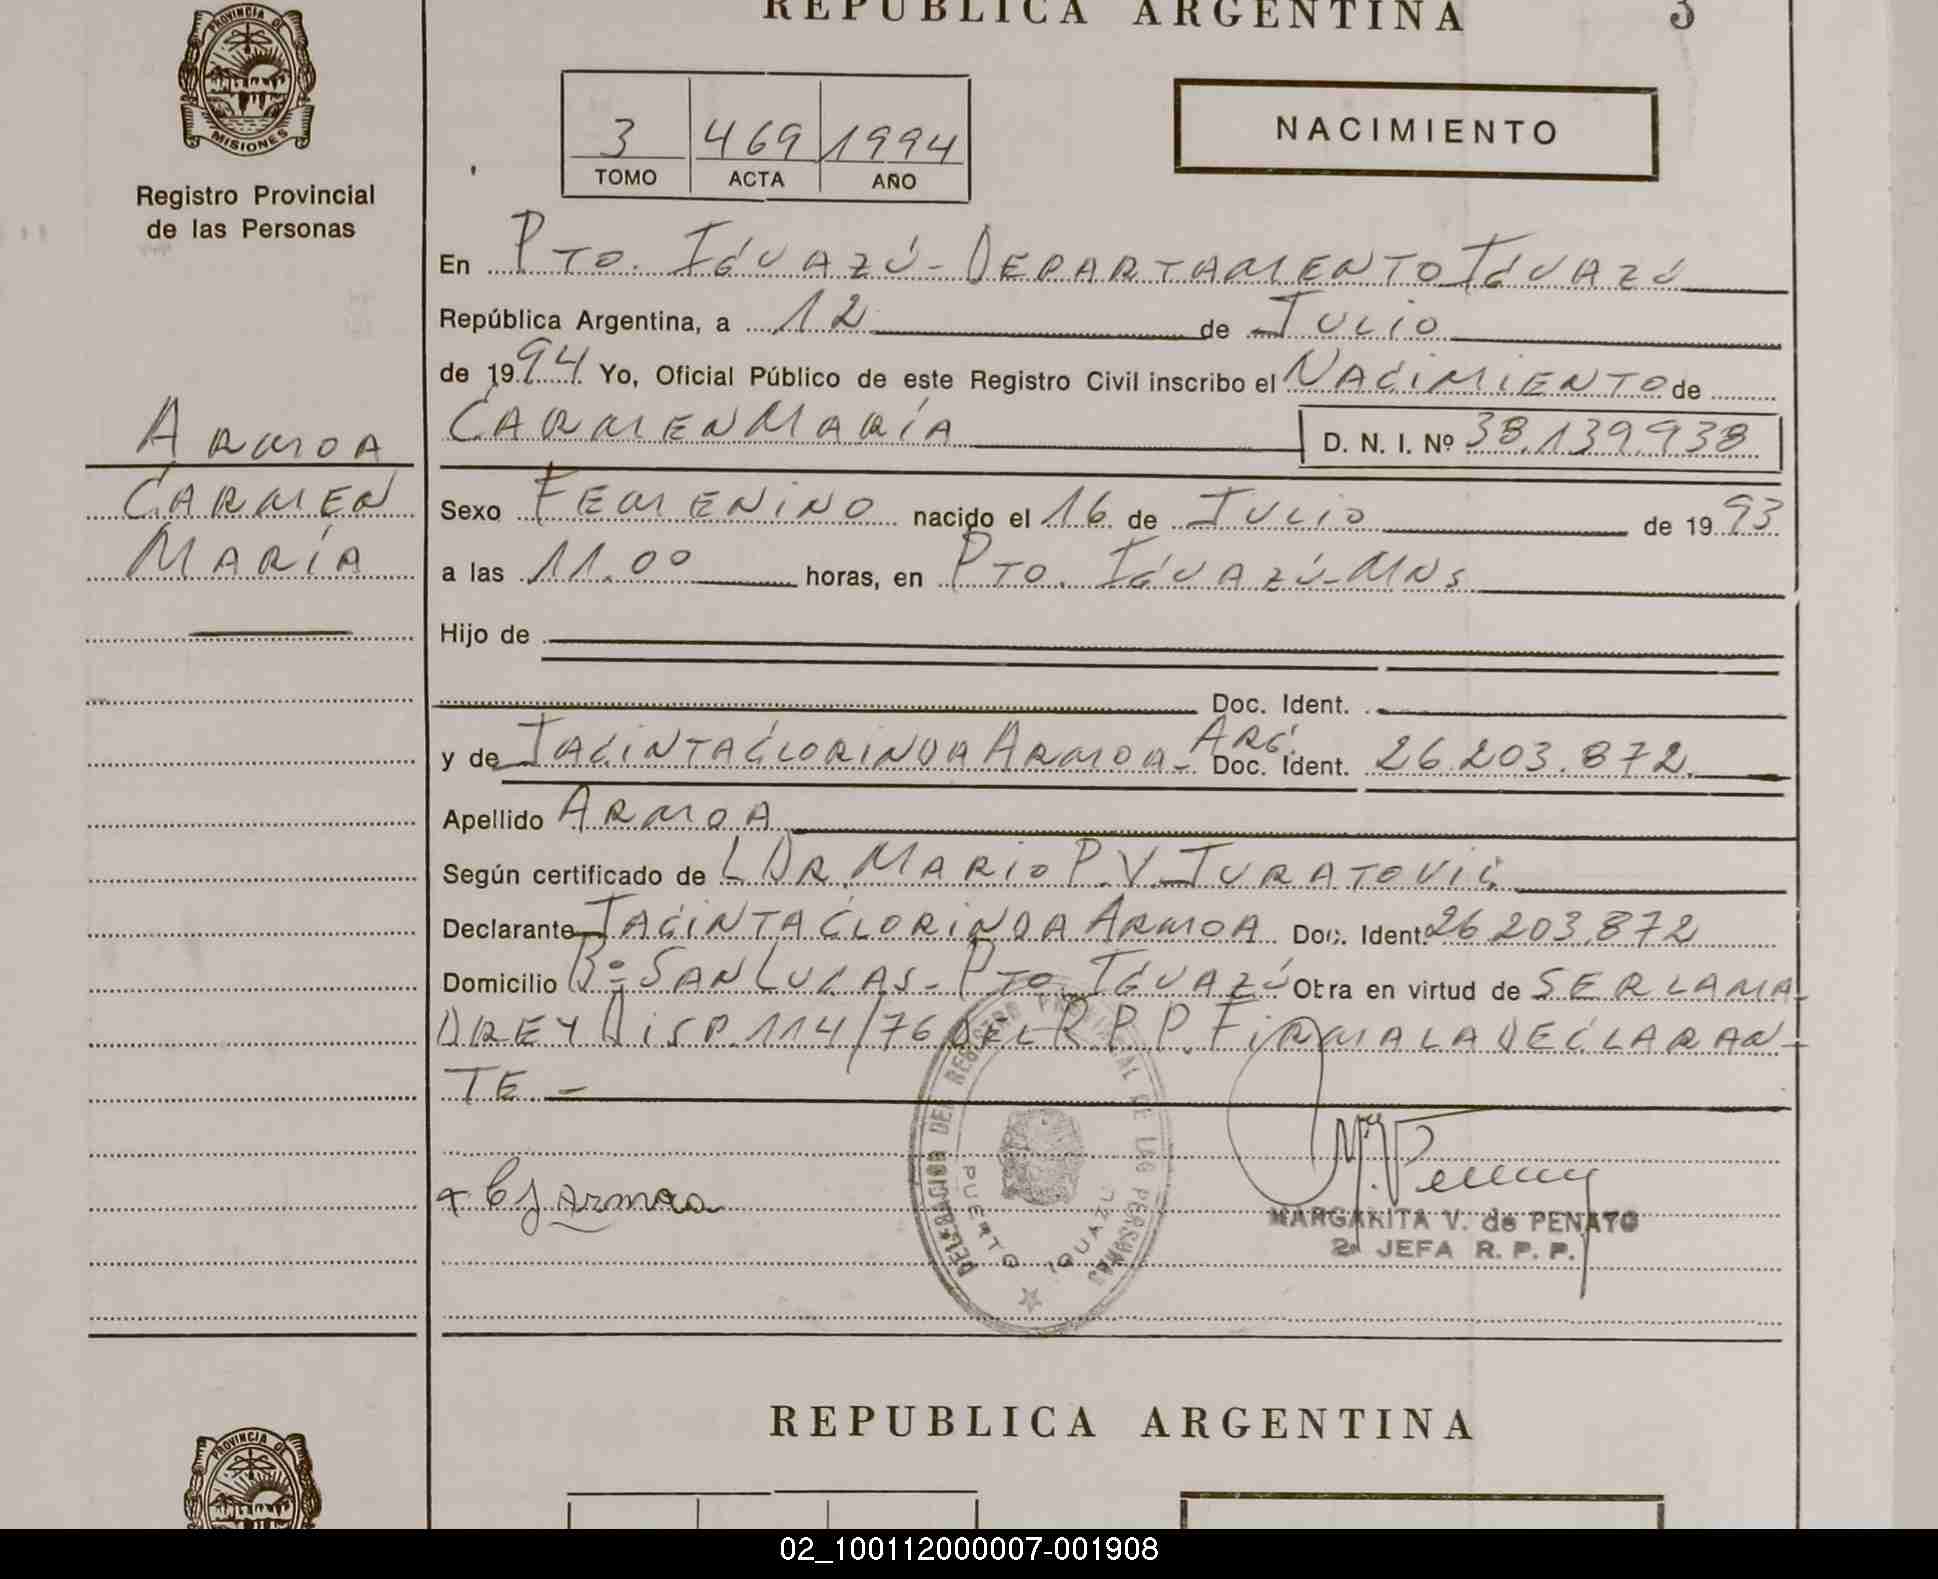 REPUBLICA ARGENTINA 3
PROVINCIA DE
MISIONES
Registro Provincial
de las Personas
3 469 1994
TOMO ACTA AÑO
NACIMIENTO
En PTO. IGUAZÚ - DEPARTAMENTO IGUAZÚ
República Argentina, a 12 de JULIO
de 1994 Yo, Oficial Público de este Registro Civil inscribo el NACIMIENTO de
CARMEN MARÍA D. N. I. Nº 38.139.938
ARMOA
CARMEN
MARÍA
Sexo FEMENINO nacido el 16 de JULIO de 1993
a las 11.00 horas, en PTO. IGUAZÚ - MNS
Hijo de
Doc. Ident.
y de JACINTA CLORINDA ARMOA - ARG. Doc. Ident. 26.203.872
Apellido ARMOA
Según certificado de L DR. MARIO P. V. JURATOVIC
Declarante JACINTA CLORINDA ARMOA Doc. Ident. 26.203.872
Domicilio Bº SAN LUCAS - PTO IGUAZÚ Otra en virtud de SER LA MA-
DRE Y DISP. 114/76 DEL R. P. P. FIRMA LA DECLARAN-
TE -
DELEGACION DEL REGISTRO PROVINCIAL DE LAS PERSONAS
PUERTO IGUAZU
Armoa
MARGARITA V. de PENAYO
2ª JEFA R. P. P.
REPUBLICA ARGENTINA
PROVINCIA DE
02_100112000007-001908